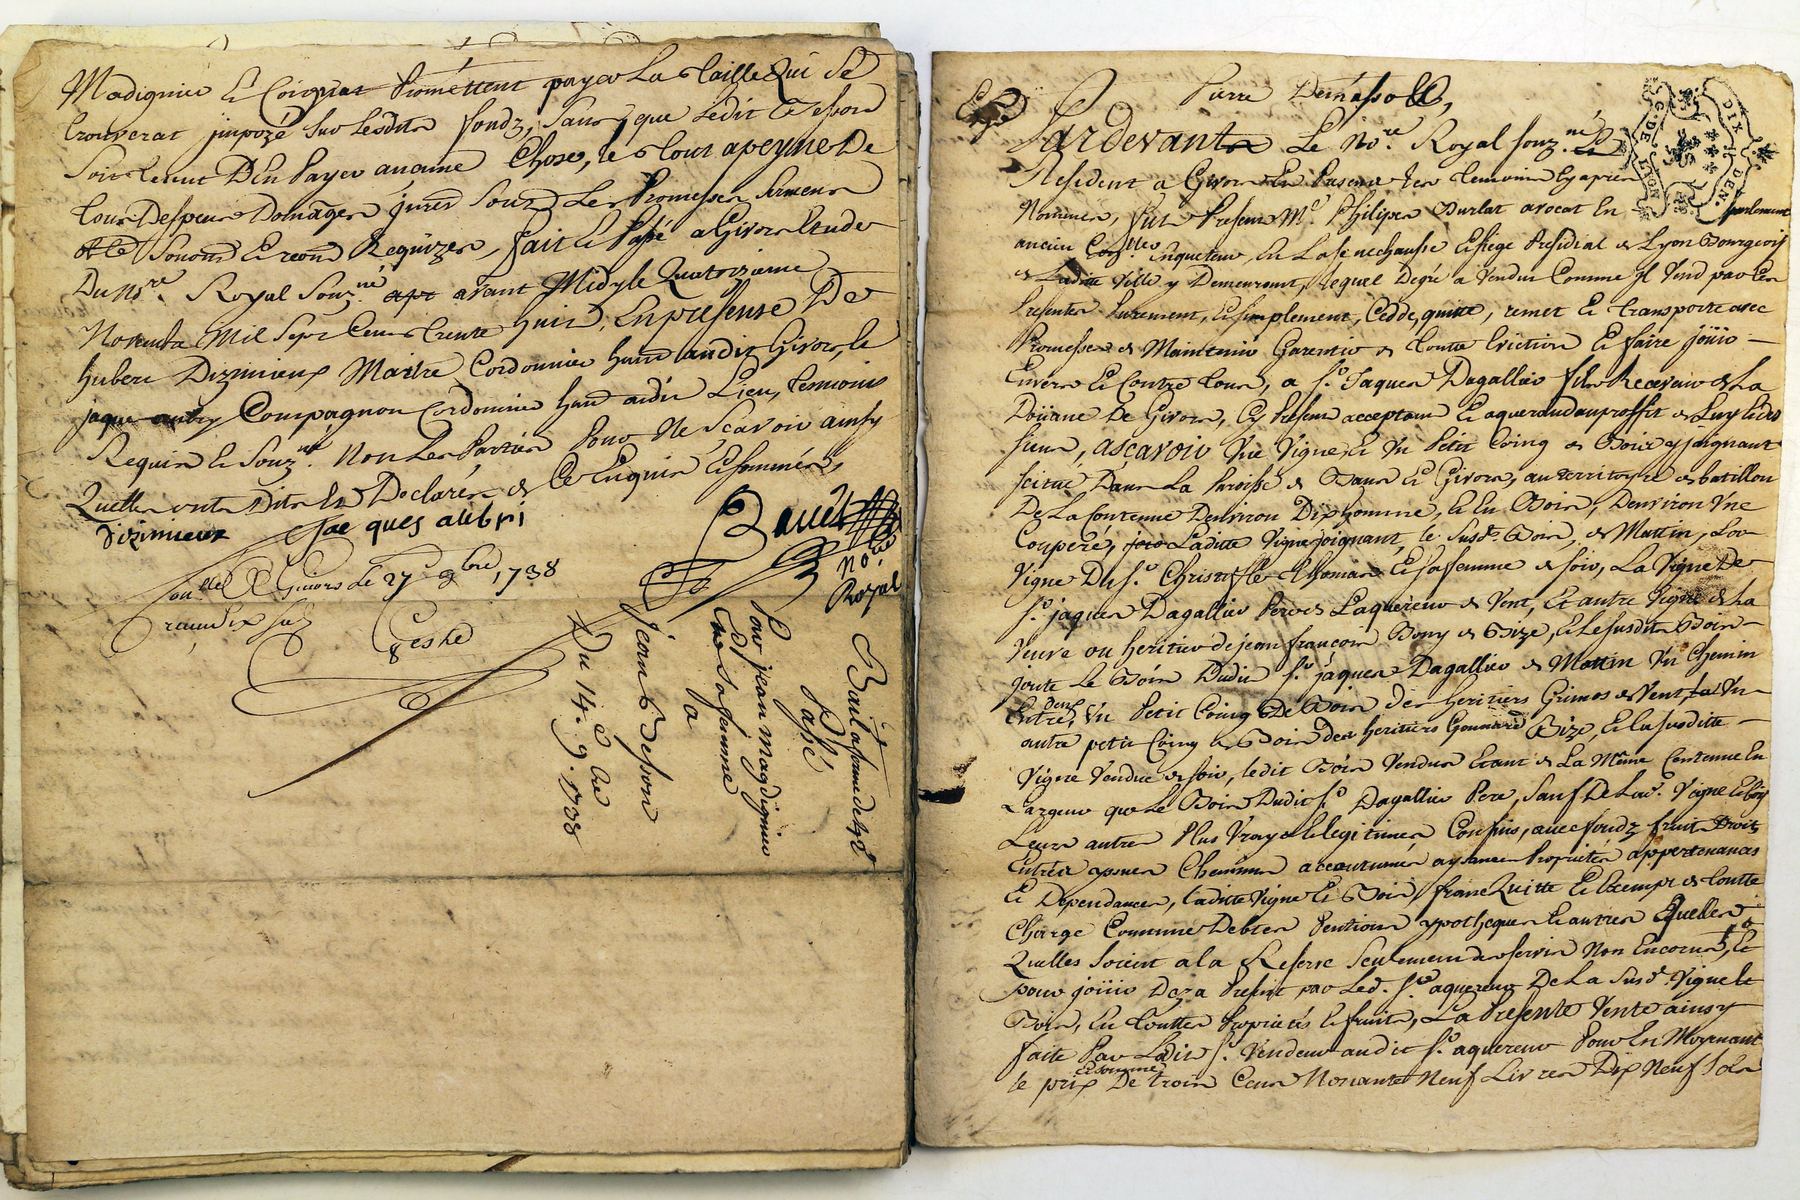 Madignier et Coignat Promettent payer La Taille Qui se
trouverat jmpozé Sur Lesdits fondz, Sans que Ledit Besson
Soit tenut D'En Payer aucune Chose, le tout a peyne De
tous Despens Domages jnterd Souz Les Promesses Sermens
Requizes, fait et Passé a Givors Etude
Du No.re Royal Souz.né avant Midy le Quatorzieme
Novembre Mil Sept Cens trente huit, En presense De
hubert Dizimieux Maitre Cordonnier habt audit Givors, et
jaque aubry Compagnon Cordonnier habt audit Lieu, temoins
Requis et Souz.nés Non Les Parties Pour Ne Scavoir ainsy
Quelles ont Dits Et Declarés de Ce Enquis et Sommées
Dizimieux Jac ques alibri
Givors Le 27 9bre 1738
Reçu dix sols
No.re Royal
Du 14.e 9.bre 1738
jean Besson
a
Pour jean magdignier
et Sa femme
Passé
Pierre
Pardevant Le No.re Royal Souz.né
Resident a Givors En Presence des temoins Cy apres
Nommes, fut Present M.e Philipes Burlat avocat En parlement
ancien Con.ller Enqueteur En La Senechaussé et Siege Presidial de Lyon Bourgeois
de Ladite Ville y Demeurant, Lequel Degré a Vendu Comme Jl Vend par Les
Presentes Purement, et simplement, Cedde, quitte, remet Et transporte avec
Promesse de Maintenir Garentir de toutte Eviction Et faire joüir
Envers Et Contre tous, a S.r Jaques Dagallier fils Receveur de La
Doüane De Givors, Cy Present acceptant Et aquerand au proffit de Luy Et des
siens, ascavoir Une Vigne, et Un Petit Coing de Bois y joignant
scitué Dans La Paroisse de Bans Et Givors, au territoire de batillon
De La Contenue D'environ Dix hommé, Et En Bois, D'environ Une
Couperé, Laditte Vigne joignant, le Susd. Bois, de Mattin, La
Vigne Du S.r Christofle Thomas Et Sa femme de soir, La Vigne De
S.r jaques Dagallier Pere de L'aquereur de Vent, Et autre Vigne de La
Veuve ou heritier de jean françois Bony de Bize, Et Le Susdit Bois
joute Le Bois Dudit S.r jaques Dagallier de Mattin Un Chemin
Entre deux, Un Petit Coing De Bois Des heritiers Grimos de Vent, Un
autre petit Coing de Bois des heritiers Gonnard de Bize, Et La Susditte
Vigne Vendue de soir, Ledit Bois Vendu Etant de La Même Contenue En
Largeur que Le Bois Dudit S.r Dagallier Pere, Sauf De Lad. Vigne et bois
Leurs autres Plus Vrays et legitimes Confins, avec fondz fruits Droits
Entrées yssues Chemins accoutumés aysances Proprietés appertenances
Et Dependances, Laditte Vigne Et Bois, franc Quitte Et Exempt de toutte
Charge Commune Debtes Pentions ypotheques Et autres Quelles
Quelles Soient a La Reserve Seulement des servis Non Encourus, Et
pour joüir Deza Present par Led. S.r aquereur De La Susd. Vigne Et
Bois, En touttes Proprietés et fruits, La Presente Vente ainsy
faite Par Ledit S.r Vendeur audit S.r aquereur Pour Et Moyennant
le prix et somme De trois Cens Nonante Neuf Livres Dix Neuf Sols